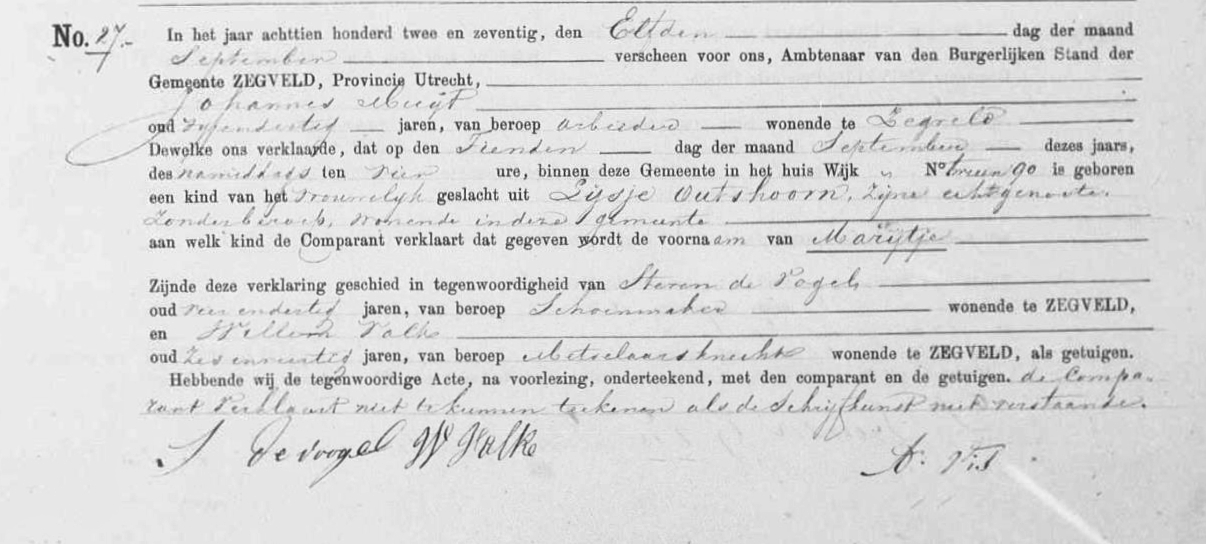 No. 27.- In het jaar achttien honderd twee en zeventig, den Elfden dag der maand
September verscheen voor ons, Ambtenaar van den Burgerlijken Stand der
Gemeente ZEGVELD, Provincie Utrecht,
Johannes
oud jaren, van beroep arbeider wonende te Zegveld
Dewelke ons verklaarde, dat op den Tienden dag der maand September dezes jaars,
des namiddags ten vier ure, binnen deze Gemeente in het huis Wijk „ No 90 is geboren
een kind van het vrouwelijk geslacht uit Lijsje Outshoorn, zijne echtgenoote.
zonder beroep, wonende in deze gemeente
aan welk kind de Comparant verklaart dat gegeven wordt de voornaam van Marijtje
Zijnde deze verklaring geschied in tegenwoordigheid van Steven de Vogel
oud vier endertig jaren, van beroep Schoenmaker wonende te ZEGVELD,
en Willem Valk
oud jaren, van beroep Metselaarsknecht wonende te ZEGVELD, als getuigen.
Hebbende wij de tegenwoordige Acte, na voorlezing, onderteekend, met den comparant en de getuigen. de Compa-
rant verklaart niet te kunnen teekenen als de schrijfkunst niet verstaande.
S de voogel W Valk